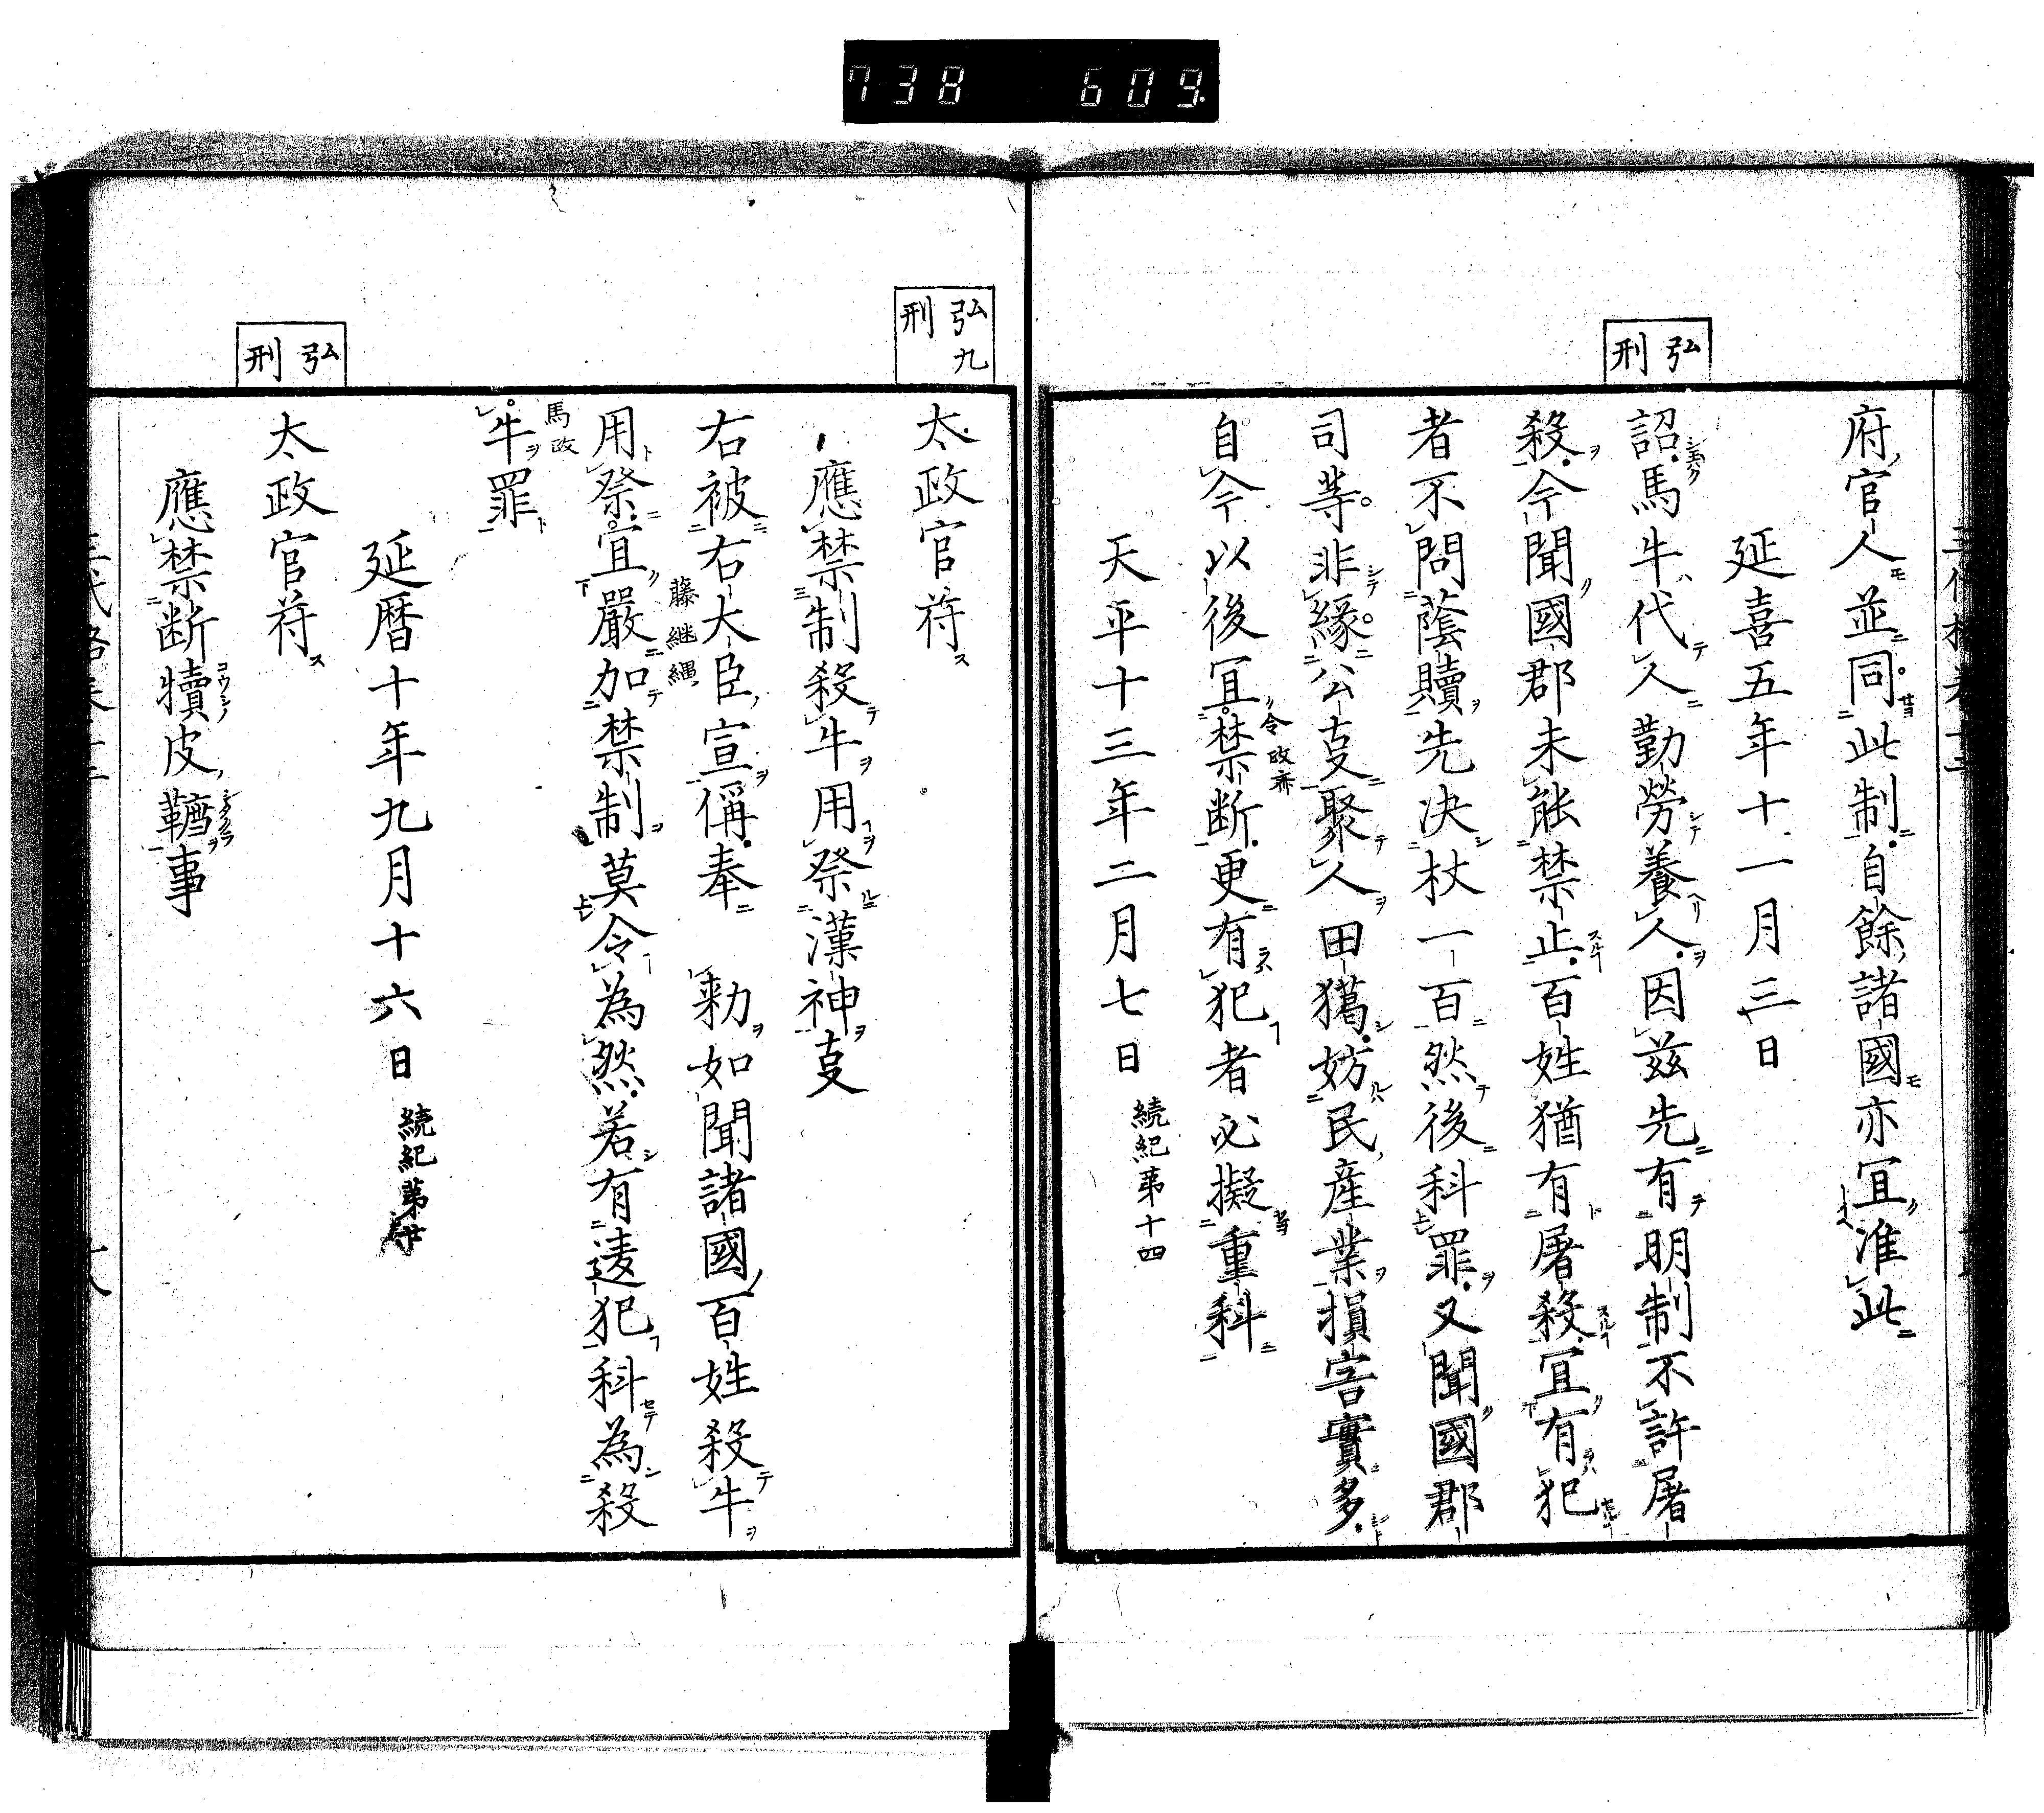 738 609
弘刑
府官人並同此制自餘諸國亦冝准此
延喜五年十一月三日
詔馬牛代人勤勞養人因茲先有明制不許屠
殺今聞國郡未能禁止百姓猶有屠殺冝有犯
者不問蔭贖先決杖一百然後科罪又聞國郡
司等非緣公事聚人田獦妨民産業損害實多
自今以後冝禁断更有犯者必擬重科
令政齊
天平十三年二月七日 続紀第十四
弘九刑
太政官苻
應禁制殺牛用祭漢神事
右被右大臣宣偁奉 勅如聞諸國百姓殺牛
藤継縄
用祭宜嚴加禁制莫令為然若有違犯科為殺
馬政
牛罪
延暦十年九月十六日 続紀第
弘刑
太政官苻
應禁断犢皮韉事
コウシノ
シタクラヲ